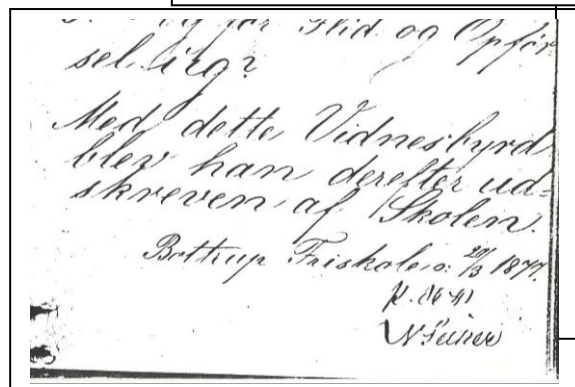 for Flid og Opfør
sel.
Med dette Vidnesbyrd
blev han derefter ud=
skreven af Skolen.
Bøttrup Friskole 1877.